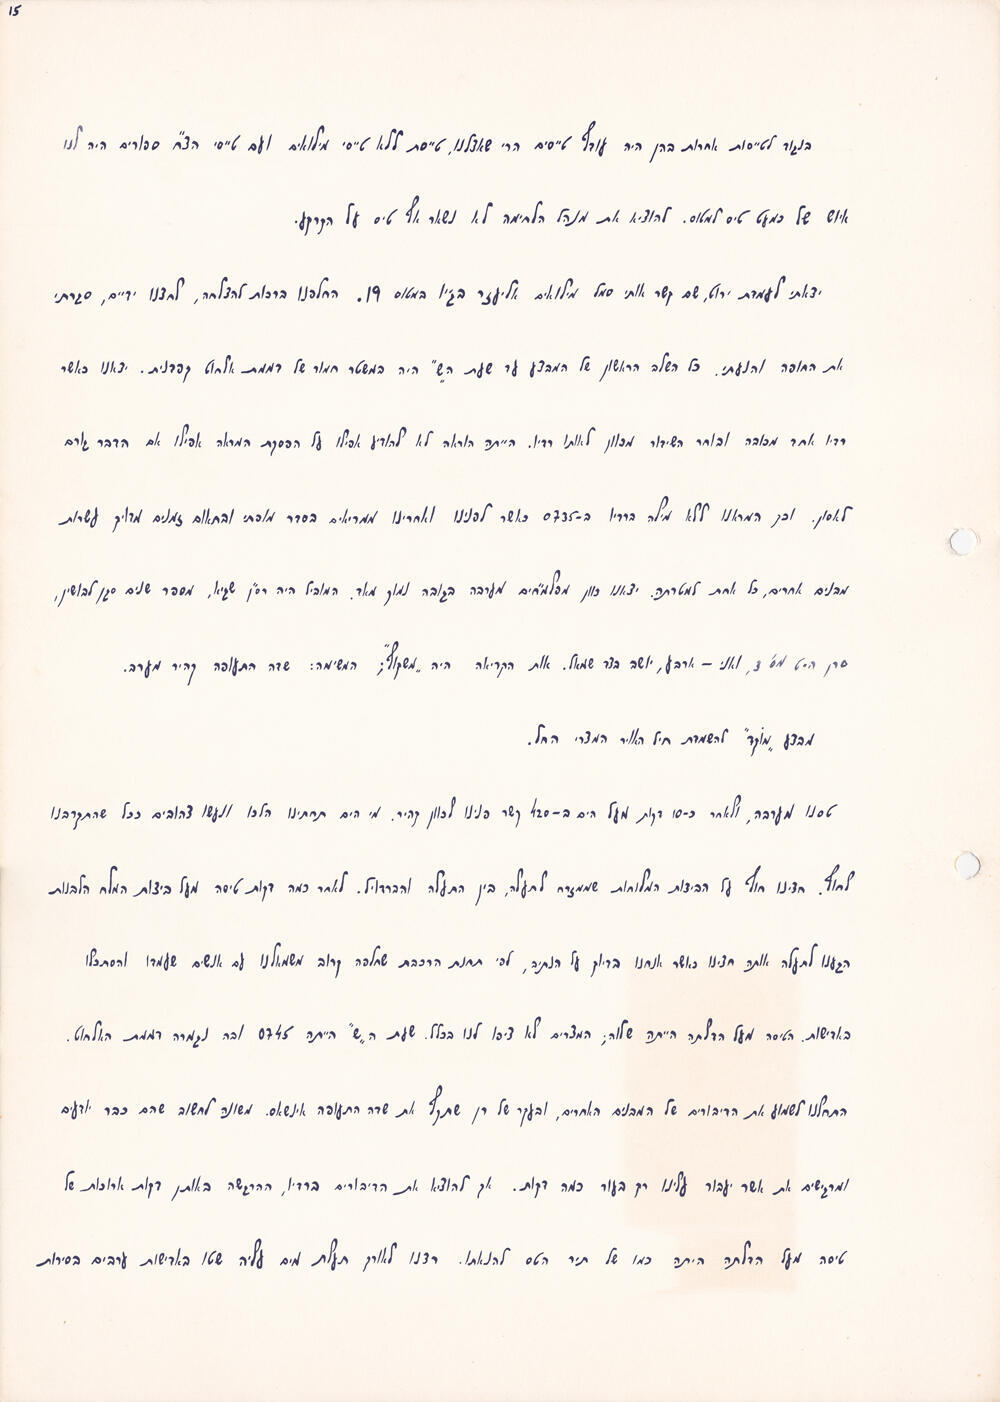 15
בנגוד לטייסות אחרות בהן היה עודף טייסים הרי שאצלנו, טייסת ללא טייסי מילואים ועם טייסי הצ"ח ספורים היה לנו
איוש של כמעט טיס למטוס. להוציא את מנהל הלחימה לא נשאר אף טיס על הקרקע.
יצאתי לעמדת ירוט, שם קשר אותי סמל מילואים אליעזר בג'יו במטוס 19. החלפנו ברכות להצלחה, לחצנו ידיים, סגרתי
את החופה והנעתי. כל השלב הראשון של המבצע עד שעת ה"ש" היה במשטר חמור של דממת אלחוט קפדנית. יצאנו כאשר
רדיו אחד מכובה ובורר השידור מכוון לאותו רדיו. הייתה הוראה לא להודיע אפילו על הפסקת המראה אפילו אם הדבר גורם
לאסון. וכך המראנו ללא מילה ברדיו ב-0735 כאשר לפנינו ואחרינו ממריאים בסדר מופתי ובתאום זמנים מדויק עשרות
מבנים אחרים, כל אחת למטרתה. יצאנו כוון מפלמ"חים מערבה בגובה נמוך מאד. המוביל היה רס"ן שגיא, מספר שנים סגן לבושין,
סרן מס' 3, ואני – ארבע, יושב בצד שמאל. אות הקריאה היה "משקוף"; המשימה: שדה התעופה קהיר מערב.
מבצע "מוקד" להשמדת חיל האויר המצרי החל.
טסנו מערבה, ולאחר כ-10 דקות מעל הים ב-420 קשר פנינו לכוון קהיר. מי הים תחתינו הלכו ונעשו צהובים ככל שהתקרבנו
לחוף. חצינו חוף על הביצות המלוחות שממזרח לתעלה, בין התעלה והברדויל. לאחר כמה דקות טיסה מעל ביצות המלח הלבנות
הגענו לתעלה אותה חצינו כאשר אנחנו בדיוק על הנתיב, לפי תחנת הרכבת שחלפה קרוב משמאלנו עם אנשים שעמדו והסתכלו
באדישות. הטיסה מעל הדלתה הייתה שלוה; המצרים לא ציפו לנו בכלל. שעת ה"ש" הייתה 0745 ובה נגמרה דממת האלחוט.
התחלנו לשמוע את הדיבורים של המבנים האחרים, ובעקר של רן שתקף את שדה התעופה אינשאס. משונה לחשוב שהם כבר יודעים
ומרגישים את אשר יעבור עלינו רק בעוד כמה דקות. אך להוציא את הדיבורים ברדיו, ההרגשה באותן דקות ארוכות של
טיסה מעל הדלתה היתה כמו של תיר הטס להנאתו. רצנו לאורך תעלת מים עליה שטו באדישות ערבים בסירות